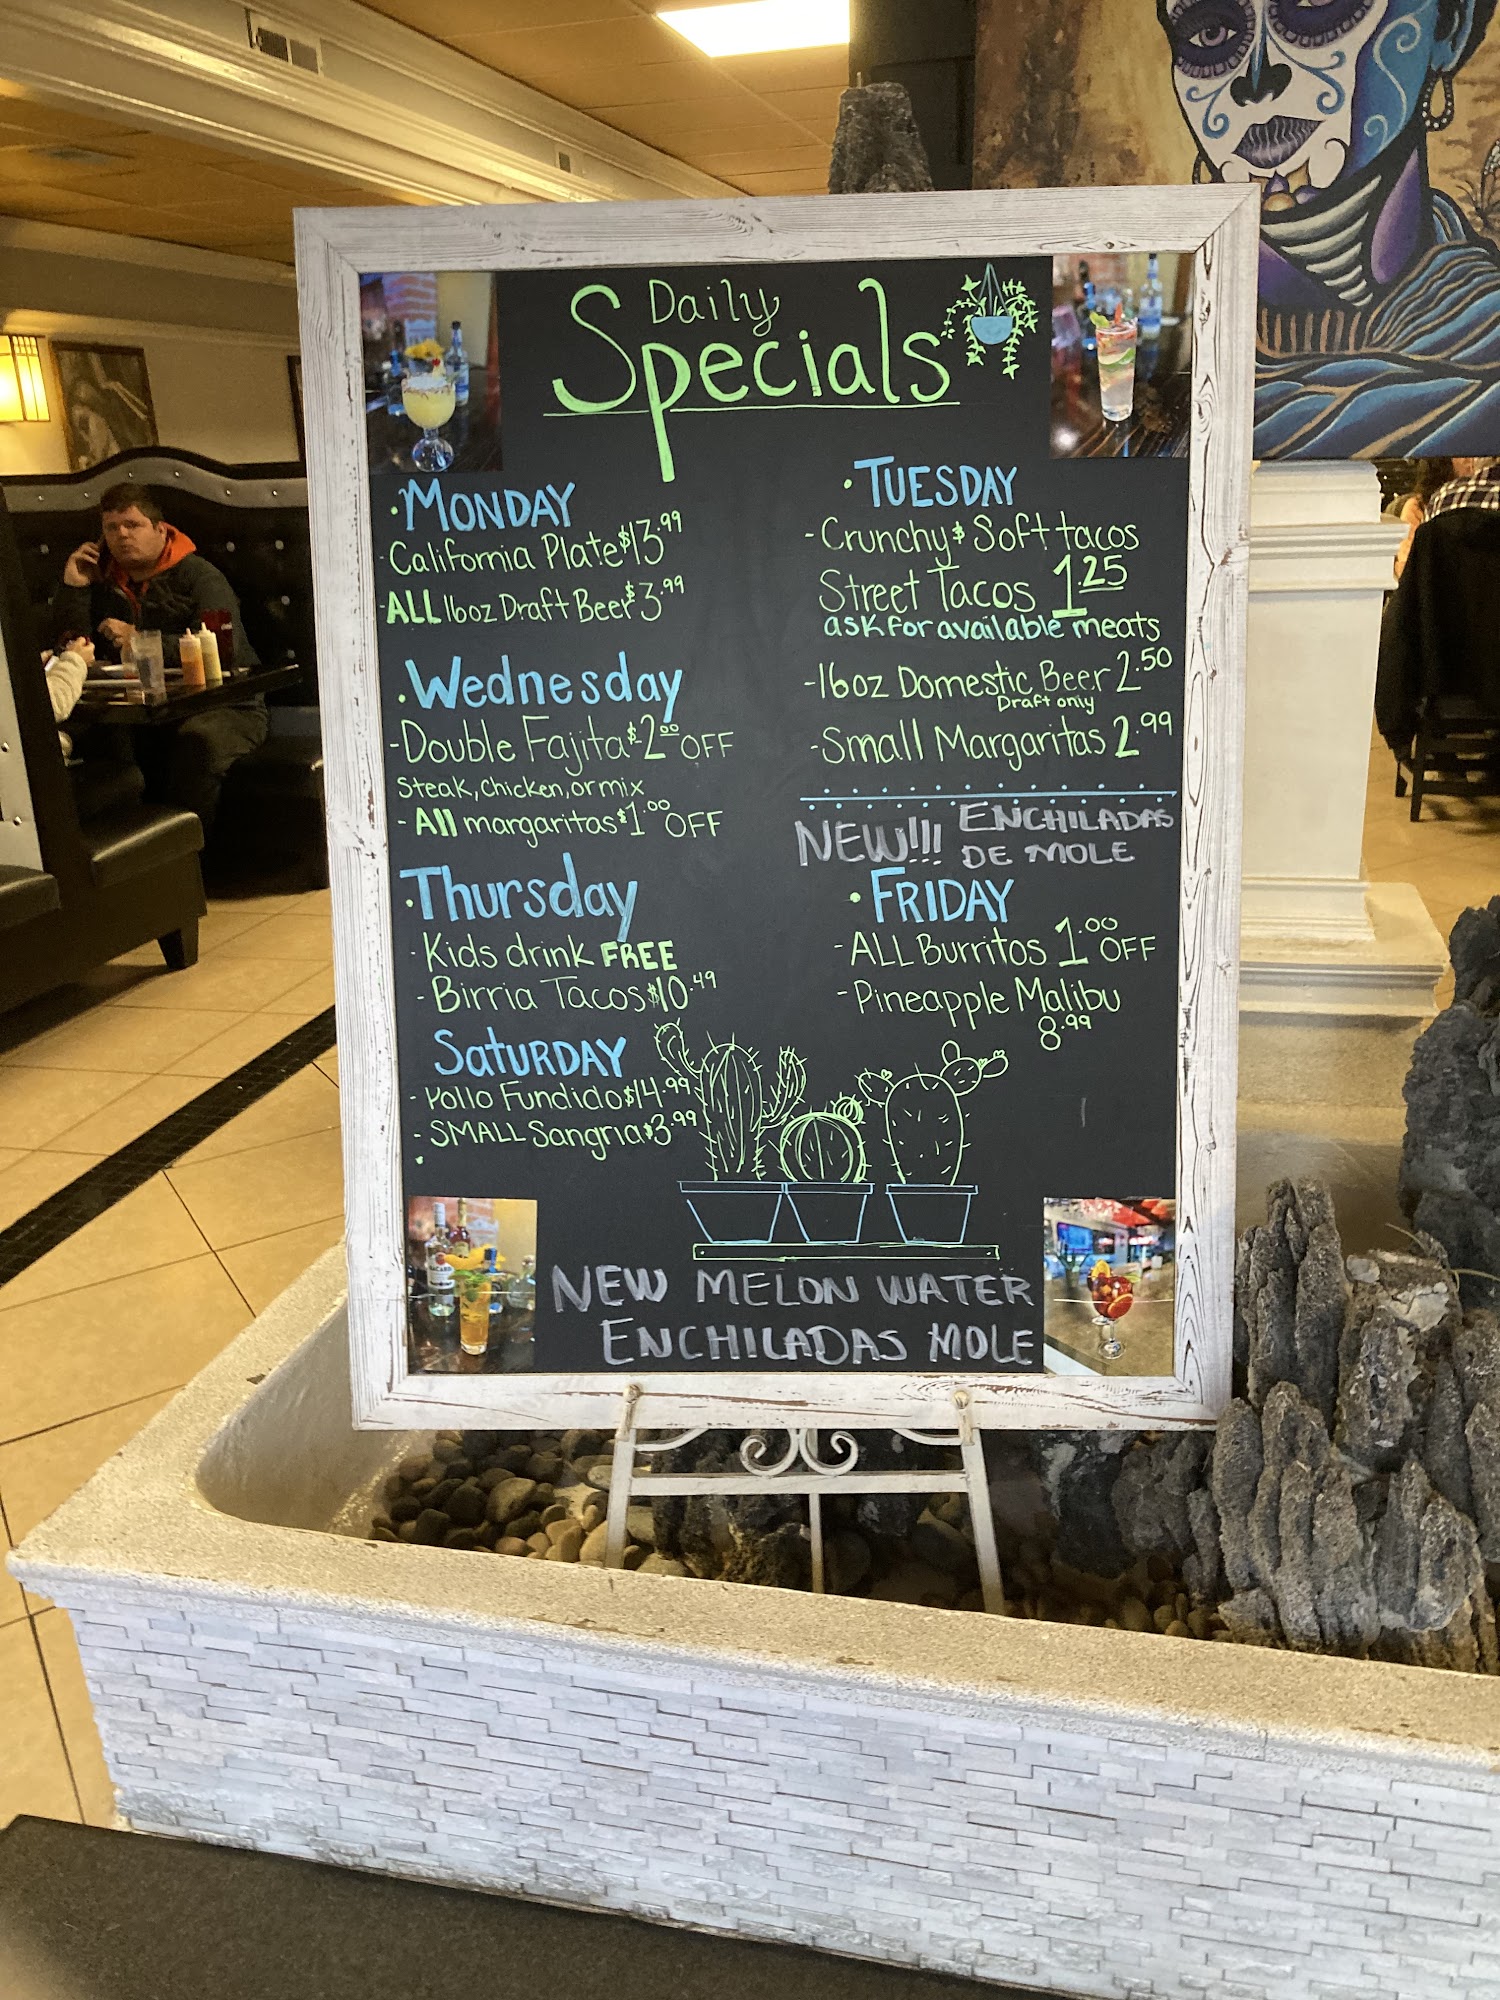 Daily
Specials
• MONDAY
- California Plate $13.99
- ALL 16oz Draft Beer $3.99
• Wednesday
- Double Fajita $2.00 OFF
Steak, chicken, or mix
- All margaritas $1.00 OFF
• Thursday
- Kids drink FREE
- Birria Tacos $10.49
SATURDAY
- Pollo Fundido $14.99
- SMALL Sangria $3.99
• TUESDAY
- Crunchy & Soft tacos
Street Tacos 1.25
ask for available meats
- 16oz Domestic Beer 2.50
Draft only
- Small Margaritas 2.99
NEW!!! ENCHILADAS
DE MOLE
• FRIDAY
- ALL Burritos 1.00 OFF
- Pineapple Malibu
8.99
NEW MELON WATER
ENCHILADAS MOLE